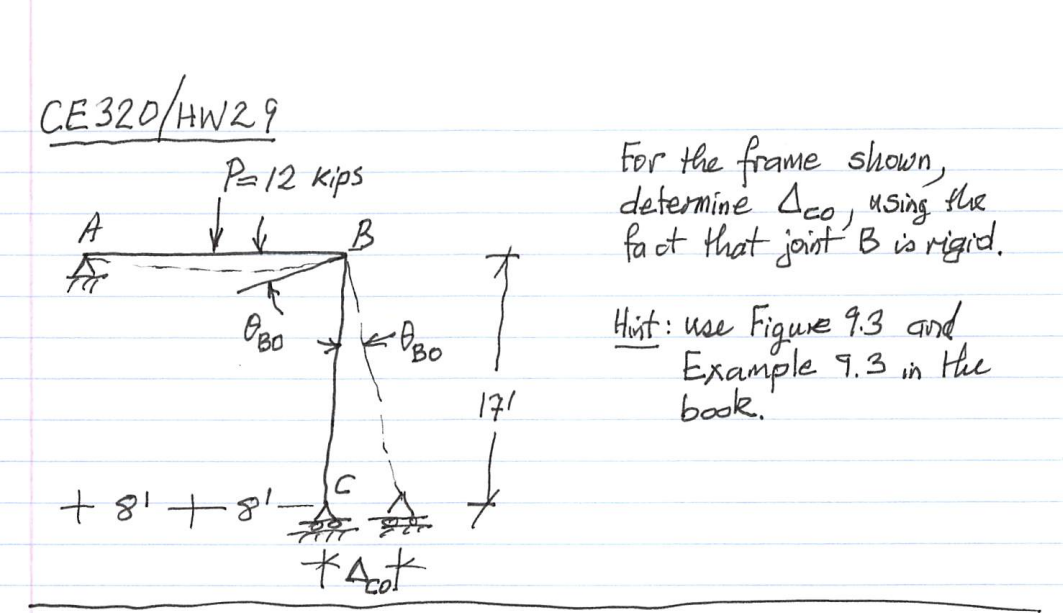 CE320/HW29
P=12 kips
A
B
θBO
θBO
17'
C
8' 8'
ΔCO
For the frame shown,
determine ΔCO, using the
fact that joint B is rigid.
Hint: use Figure 9.3 and
Example 9.3 in the
book.